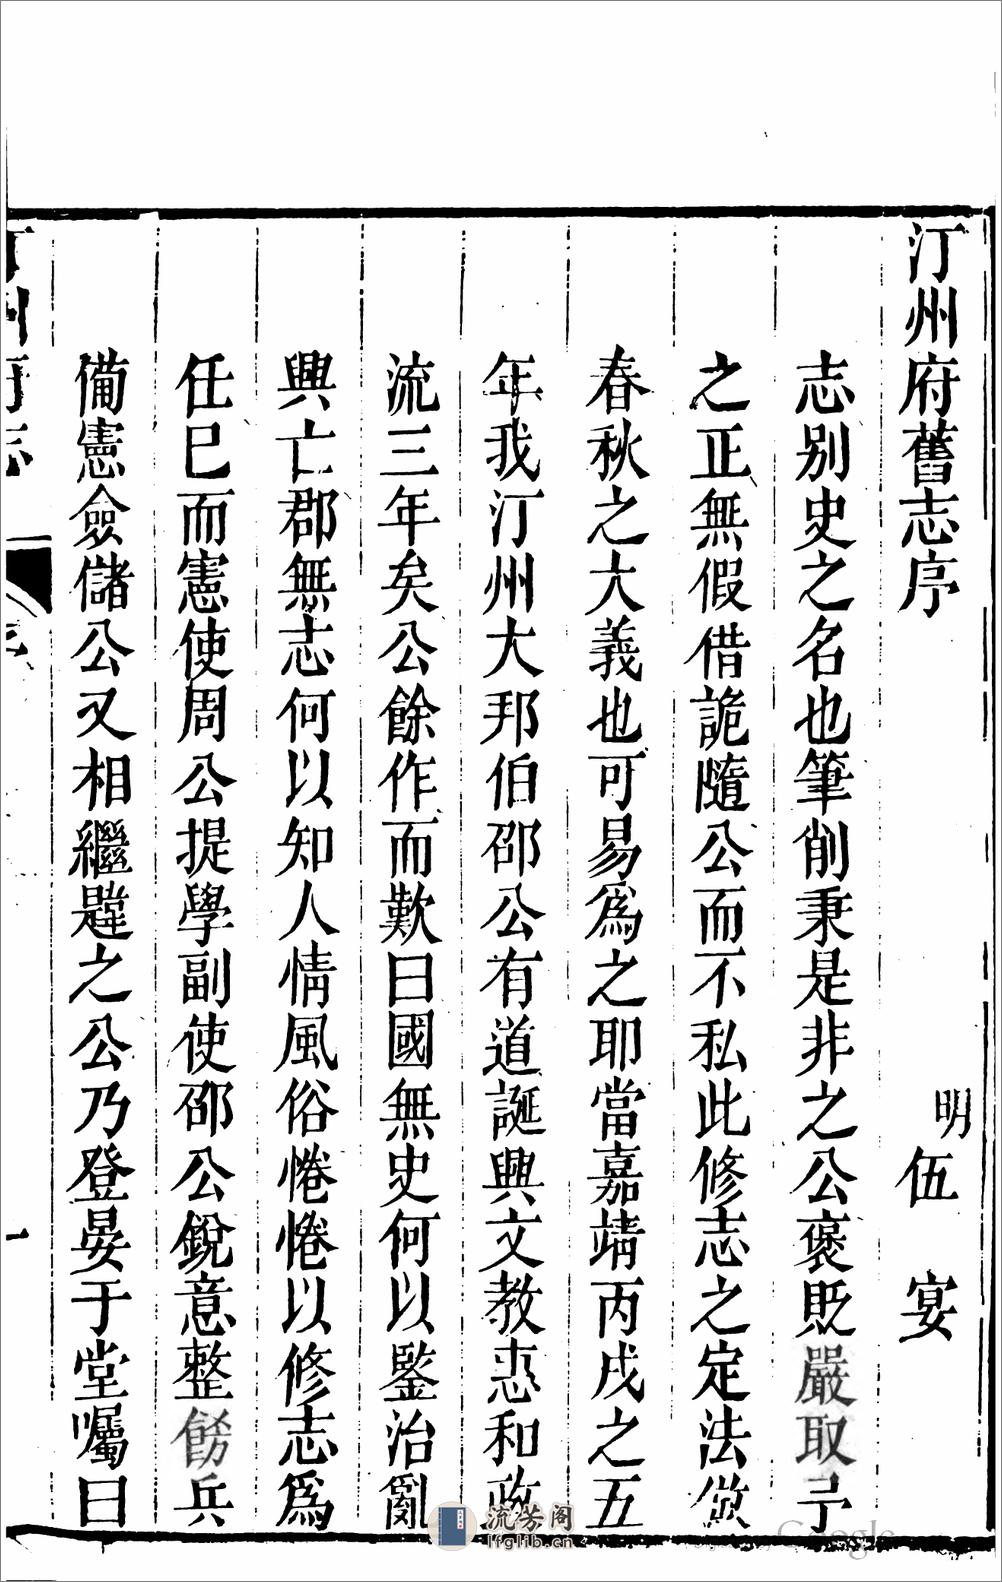 汀州府舊志序
明伍晏
志別史之名也筆削秉是非之公褒貶嚴取予
之正無假借詭隨公而不私此修志之定法倣
春秋之大義也可易爲之耶當嘉靖丙戌之五
年我汀州大邦伯邵公有道誕興文教惠和政
流三年矣公餘作而歎曰國無史何以鑒治亂
興亡郡無志何以知人情風俗惓惓以修志爲
任巳而憲使周公提學副使邵公銳意整飭兵
備憲僉儲公又相繼韙之公乃登晏于堂囑曰
汀州府志
一
流芳阁
lfglib.cn
Google